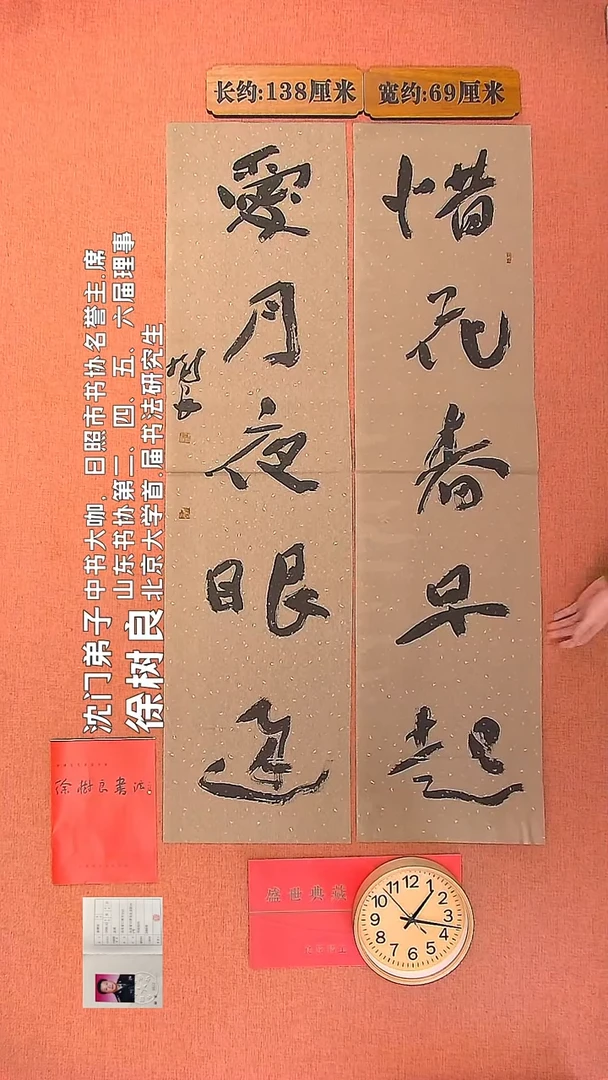 长约:138厘米
宽约:69厘米
惜花春早起
愛月夜眠遲
沈门弟子 中书大咖,日照市书协名誉主席
山东书协第三、四、五、六届理事
徐树良 北京大学首届书法研究生
徐树良书法
盛世典藏
12
1
2
3
4
5
6
7
8
9
10
11